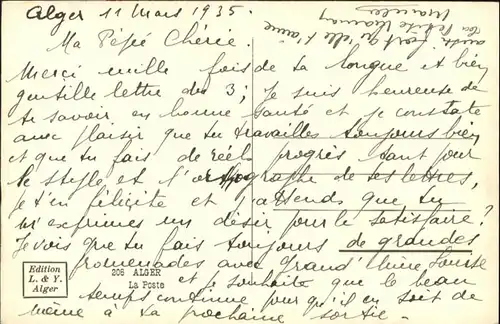 Alger 11 Mars 1935.
Ma Pépée Chérie.
Merci mille fois de ta longue et bien
gentille lettre du 3; Je suis heureuse de
te savoir en bonne santé et je constate
avec plaisir que tu travailles toujours bien
et que tu fais de réels progrès tant pour
le style et l'orthographe de tes lettres,
je t'en félicite et j'attends que tu
m'exprimes un désir pour le satisfaire?
Je vois que tu fais toujours de grandes
promenades avec grand'Mère Louise
et je souhaite que le beau
temps continue pour qu'il en soit de
même à ta prochaine sortie –
aussi fort qu'elle t'aime
ta petite
Edition
L. & Y.
Alger
206 ALGER
La Poste